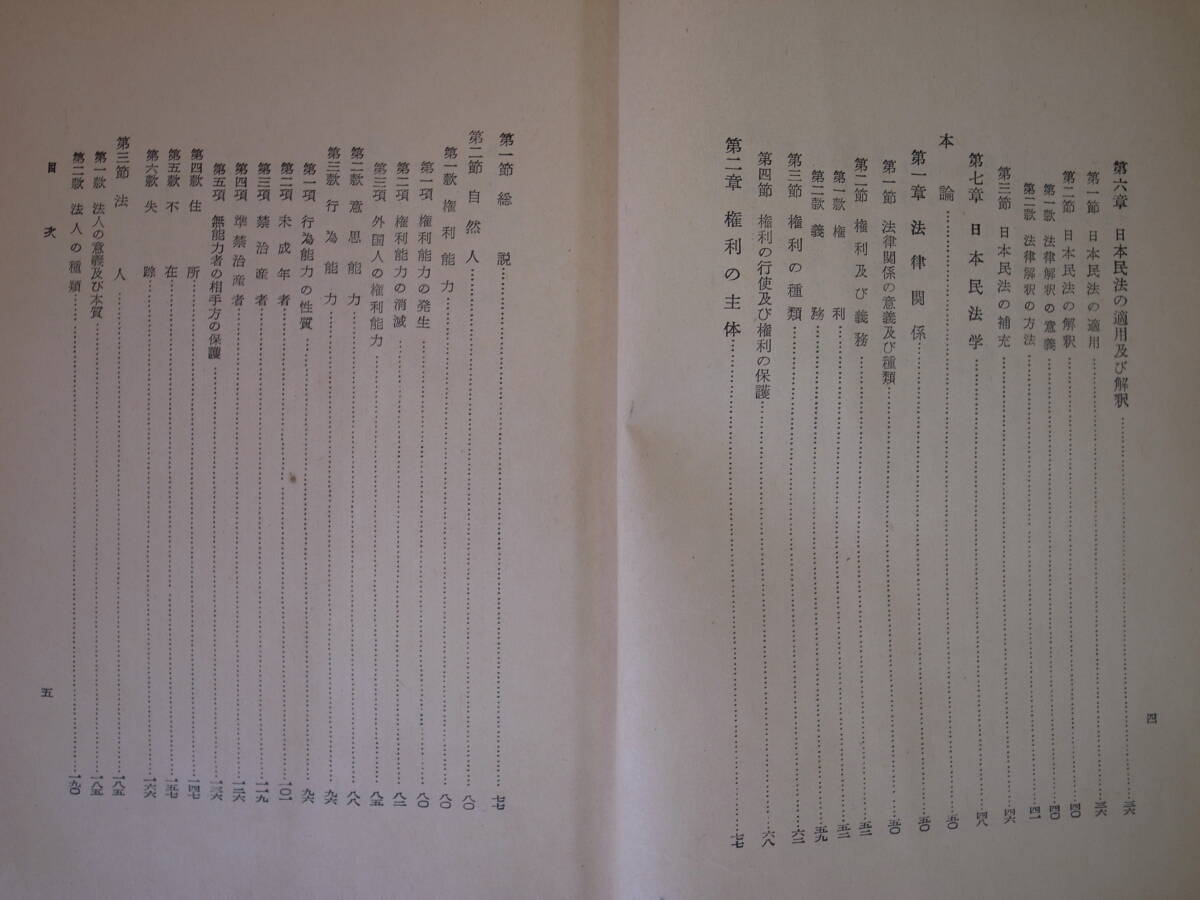 第六章 日本民法の適用及び解釈……三六
第一節 日本民法の適用……三六
第二節 日本民法の解釈……四〇
第一款 法律解釈の意義……四〇
第二款 法律解釈の方法……四一
第三節 日本民法の補充……四六
第七章 日本民法学……四八
本論……五〇
第一章 法律関係……五〇
第一節 法律関係の意義及び種類……五〇
第二節 権利及び義務……五二
第一款 権利……五二
第二款 義務……五九
第三節 権利の種類……六二
第四節 権利の行使及び権利の保護……六八
第二章 権利の主体……七七
四
第一節 総説……七七
第二節 自然人……八〇
第一款 権利能力……八〇
第一項 権利能力の発生……八〇
第二項 権利能力の消滅……八二
第三項 外国人の権利能力……八五
第二款 意思能力……八八
第三款 行為能力……九六
第一項 行為能力の性質……九六
第二項 未成年者……一〇一
第三項 禁治産者……一一九
第四項 準禁治産者……一二六
第五項 無能力者の相手方の保護……一三六
第四款 住所……一四七
第五款 不在……一五七
第六款 失踪……一六六
第三節 法人……一八五
第一款 法人の意義及び本質……一八五
第二款 法人の種類……一九〇
目次
五